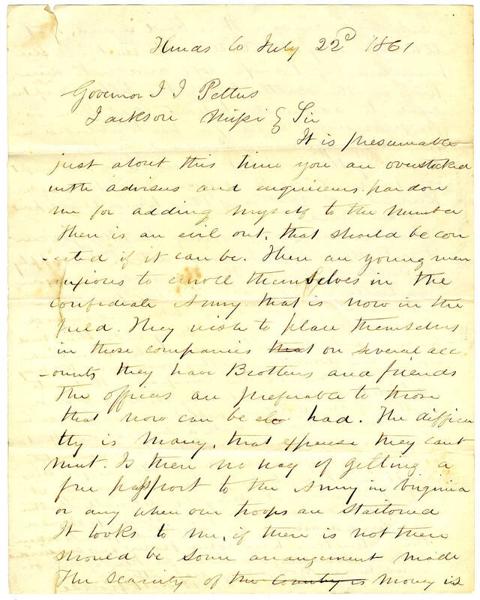 Hinds Co July 22d 1861
Governor J J Pettus
Jackson Mispi } Sir
It is presumable
just about this time you are overstocked
with advisers and enquirers. pardon
me for adding myself to the number
there is an evil out, that should be cor
-ected if it can be. There are young men
anxious to enroll themselves in the
Confederate Army that is now in the
field. They wish to place themselves
in those companies that on several acc
-ounts they have Brothers and friends
The officers are preferable to those
that now can be had. The difficu
lty is money, that expense they cant
meet. Is there no way of getting a
free passport to the Army in Virginia
or any where our troops are stationed
It looks to me, if there is not there
should be some arrangement made
The scarcity of the County is money is